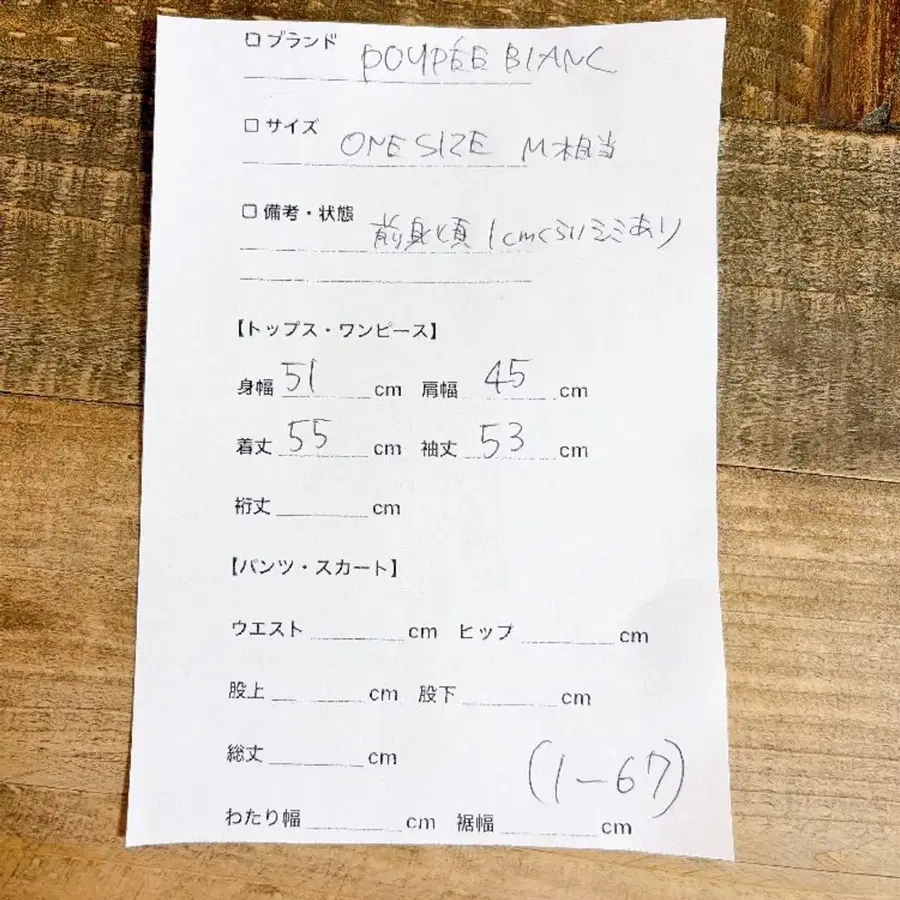 □ ブランド POUPÉE BLANC
□ サイズ ONE SIZE M相当
□ 備考・状態 前身頃 1cmくらいシミあり
【トップス・ワンピース】
身幅 51 cm 肩幅 45 cm
着丈 55 cm 袖丈 53 cm
裄丈 cm
【パンツ・スカート】
ウエスト cm ヒップ cm
股上 cm 股下 cm
総丈 cm (1-67)
わたり幅 cm 裾幅 cm